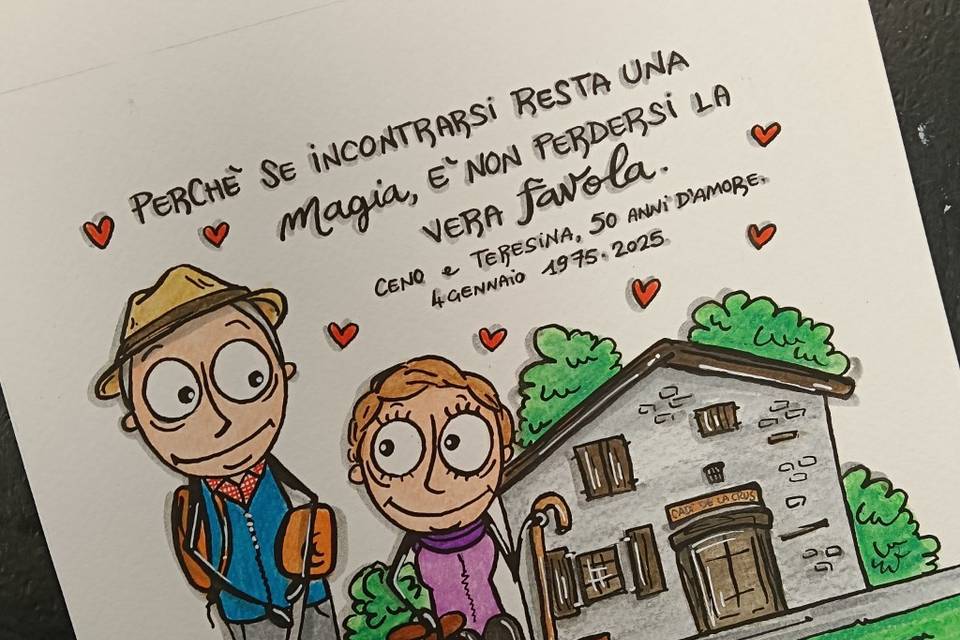 PERCHÈ SE iNCONTRARSi RESTA UNA
Magia, È NON PERDERSi LA
VERA favola.
CENO e TERESiNA, 50 ANNi D'AMORE.
4 GENNAiO 1975.2025.
CADE' DE LA CROS